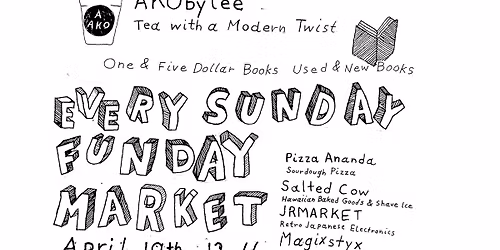 A
AKO
AKObyTee
Tea with a Modern Twist
One & Five Dollar Books Used & New Books
EVERY SUNDAY
FUNDAY
MARKET
Pizza Ananda
Sourdough Pizza
Salted Cow
Hawaiian Baked Goods & Shave Ice
JRMARKET
Retro Japanese Electronics
Magixstyx
April